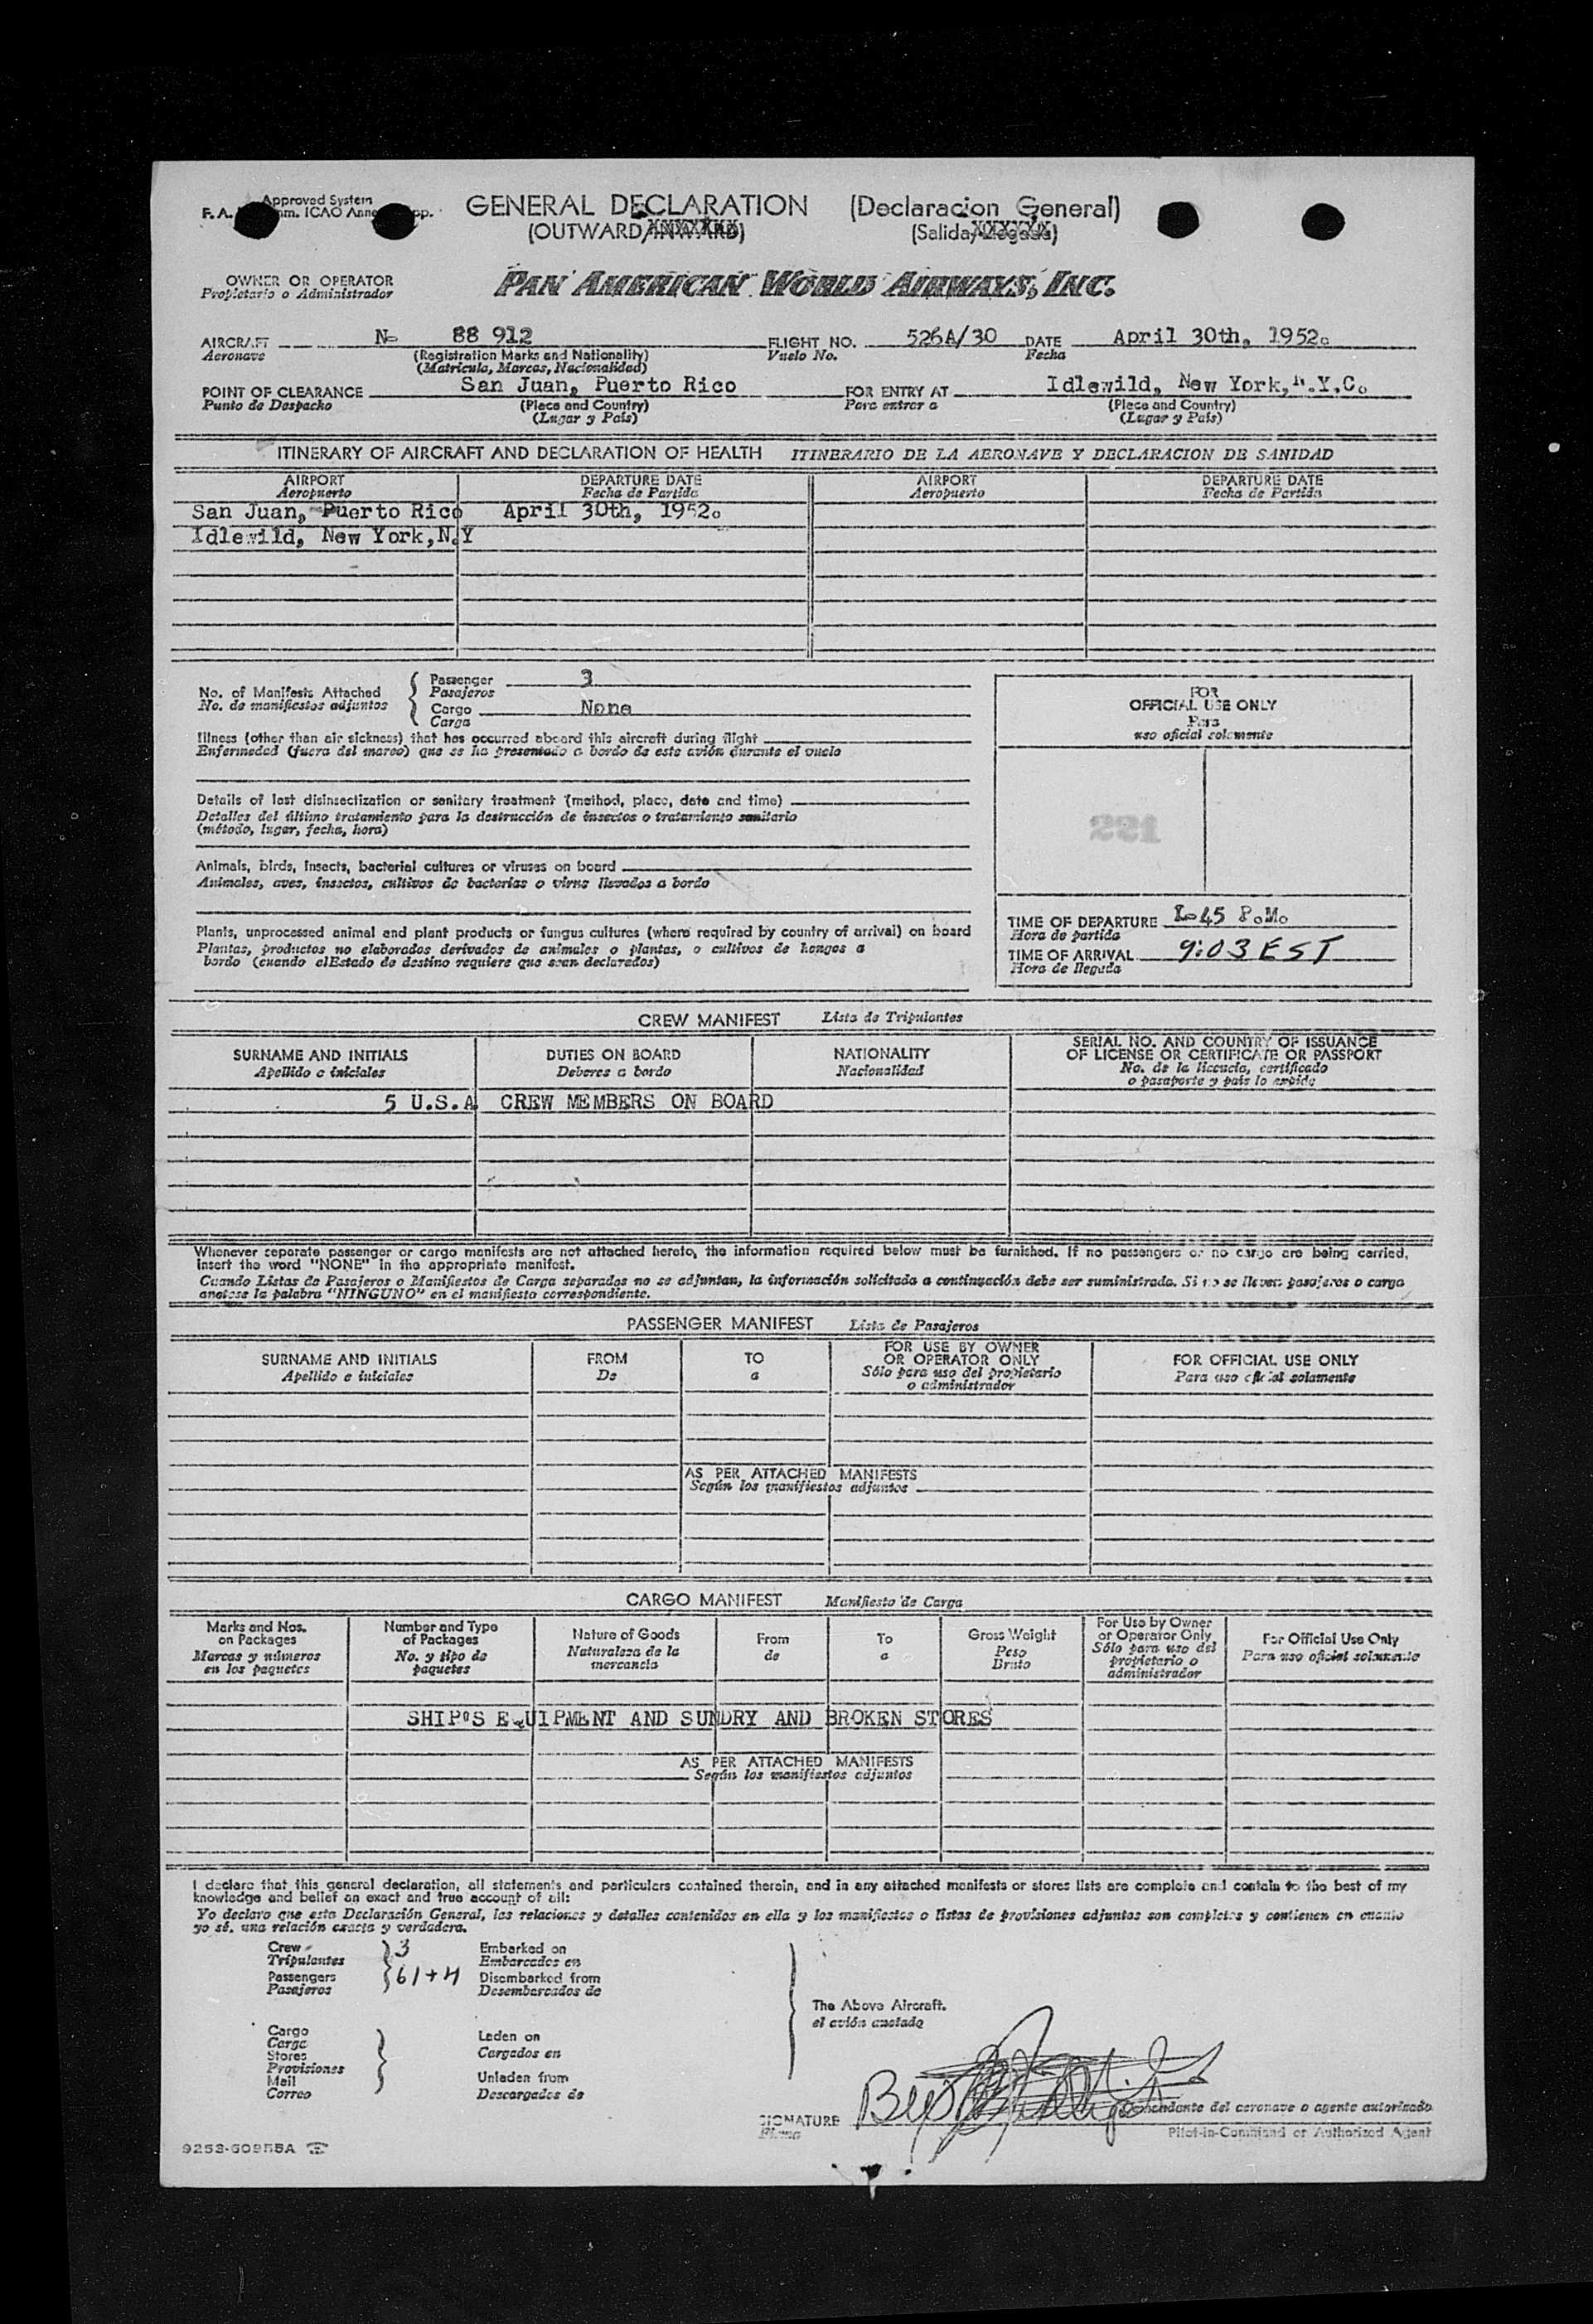 Approved System
F. A. mm. ICAO Anne pp.
GENERAL DECLARATION (Declaracion General)
(OUTWARD/INWARD) (Salida/Llegada)
OWNER OR OPERATOR
Propietario o Administrador
PAN AMERICAN WORLD AIRWAYS, INC.
AIRCRAFT N- 88 912 FLIGHT NO. 526A/30 DATE April 30th, 1952.
Aeronave (Registration Marks and Nationality) Vuelo No. Fecha
(Matricula, Marcas, Nacionalidad)
POINT OF CLEARANCE San Juan, Puerto Rico FOR ENTRY AT Idlewild, New York, N.Y.C.
Punto de Despacho (Place and Country) Para entrar a (Place and Country)
(Lugar y País) (Lugar y País)
ITINERARY OF AIRCRAFT AND DECLARATION OF HEALTH ITINERARIO DE LA AERONAVE Y DECLARACION DE SANIDAD
AIRPORT DEPARTURE DATE AIRPORT DEPARTURE DATE
Aeropuerto Fecha de Partida Aeropuerto Fecha de Partida
San Juan, Puerto Rico April 30th, 1952.
Idlewild, New York, N.Y
No. of Manifests Attached
No. de manifiestos adjuntos
Passenger 3
Pasajeros
Cargo None
Carga
Illness (other than air sickness) that has occurred aboard this aircraft during flight
Enfermedad (fuera del mareo) que se ha presentado a bordo de este avión durante el vuelo
Details of last disinsectization or sanitary treatment (method, place, date and time)
Detalles del último tratamiento para la destrucción de insectos o tratamiento sanitario
(método, lugar, fecha, hora)
Animals, birds, insects, bacterial cultures or viruses on board
Animales, aves, insectos, cultivos de bacterias o virus llevados a bordo
Plants, unprocessed animal and plant products or fungus cultures (where required by country of arrival) on board
Plantas, productos no elaborados derivados de animales o plantas, o cultivos de hongos a
bordo (cuando el Estado de destino requiere que sean declarados)
FOR
OFFICIAL USE ONLY
Para
uso oficial solamente
TIME OF DEPARTURE 45 P.M.
Hora de partida
TIME OF ARRIVAL 9:03 EST
Hora de llegada
CREW MANIFEST Lista de Tripulantes
SURNAME AND INITIALS DUTIES ON BOARD NATIONALITY SERIAL NO. AND COUNTRY OF ISSUANCE
Apellido e iniciales Deberes a bordo Nacionalidad OF LICENSE OR CERTIFICATE OR PASSPORT
No. de la licencia, certificado
o pasaporte y país lo expide
5 U.S.A. CREW MEMBERS ON BOARD
Whenever separate passenger or cargo manifests are not attached hereto, the information required below must be furnished. If no passengers or no cargo are being carried,
insert the word "NONE" in the appropriate manifest.
Cuando Listas de Pasajeros o Manifiestos de Carga separados no se adjuntan, la información solicitada a continuación debe ser suministrada. Si no se lleven pasajeros o carga
anotese la palabra "NINGUNO" en el manifiesto correspondiente.
PASSENGER MANIFEST Lista de Pasajeros
SURNAME AND INITIALS FROM TO FOR USE BY OWNER FOR OFFICIAL USE ONLY
Apellido e iniciales De a OR OPERATOR ONLY Para uso oficial solamente
Sólo para uso del propietario
o administrador
AS PER ATTACHED MANIFESTS
Según los manifiestos adjuntos
CARGO MANIFEST Manifiesto de Carga
Marks and Nos.
on Packages
Marcas y números
en los paquetes
Number and Type
of Packages
No. y tipo de
paquetes
Nature of Goods
Naturaleza de la
mercancía
From
de
To
a
Gross Weight
Peso
Bruto
For Use by Owner
or Operator Only
Sólo para uso del
propietario o
administrador
For Official Use Only
Para uso oficial solamente
SHIP'S EQUIPMENT AND SUNDRY AND BROKEN STORES
AS PER ATTACHED MANIFESTS
Según los manifiestos adjuntos
I declare that this general declaration, all statements and particulars contained therein, and in any attached manifests or stores lists are complete and contain to the best of my
knowledge and belief an exact and true account of all:
Yo declaro que esta Declaración General, las relaciones y detalles contenidos en ella y los manifiestos o listas de provisiones adjuntos son completos y contienen en cuanto
yo sé, una relación exacta y verdadera.
Crew 3 Embarked on
Tripulantes Embarcados en
Passengers 61+4 Disembarked from
Pasajeros Desembarcados de
The Above Aircraft.
el avión anotado
Cargo
Carga
Stores
Provisiones
Mail
Correo
Laden on
Cargados en
Unladen from
Descargados de
SIGNATURE
Firma
Comandante del aeronave o agente autorizado
Pilot-in-Command or Authorized Agent
9253-60955A